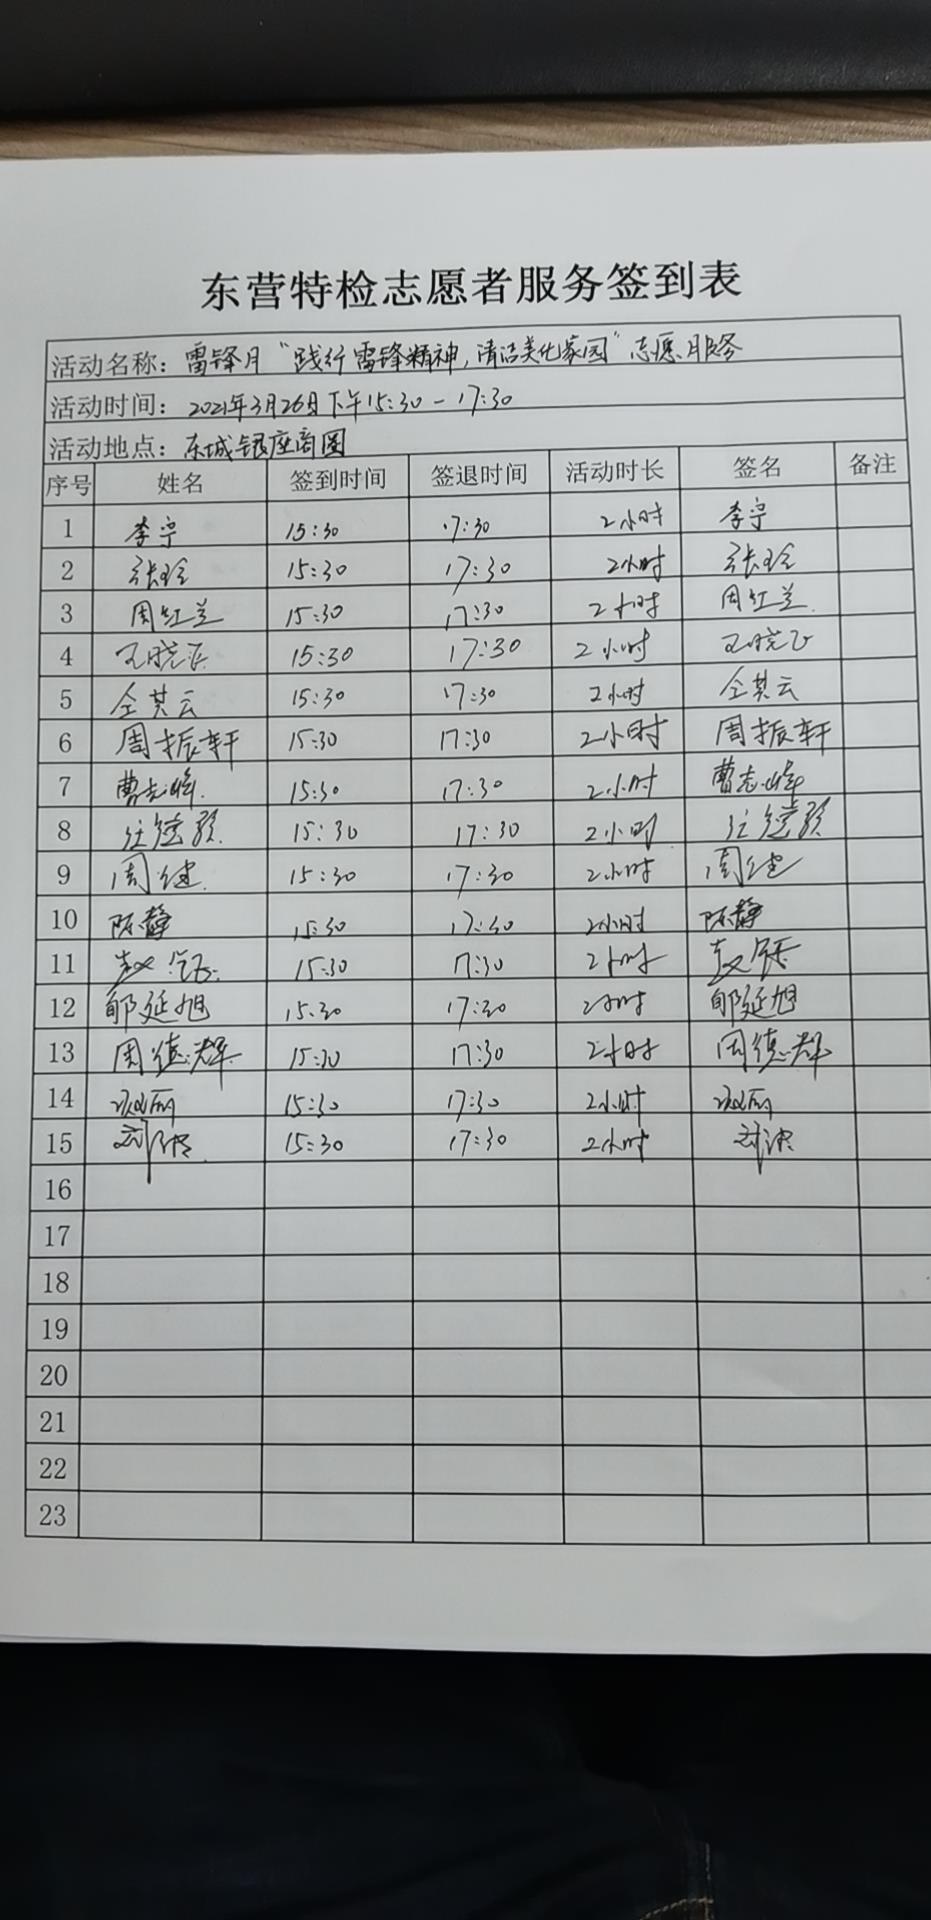 东营特检志愿者服务签到表
活动名称：雷锋月“践行雷锋精神，清洁美化家园”志愿服务
活动时间：2021年3月26日下午15:30-17:30
活动地点：东城银座商圈
序号 姓名 签到时间 签退时间 活动时长 签名 备注
1 李宁 15:30 17:30 2小时 李宁
2 张玲 15:30 17:30 2小时 张玲
3 周红兰 15:30 17:30 2小时 周红兰
4 王晓飞 15:30 17:30 2小时 王晓飞
5 仝其云 15:30 17:30 2小时 仝其云
6 周振轩 15:30 17:30 2小时 周振轩
7 曹志峰 15:30 17:30 2小时 曹志峰
8 15:30 17:30 2小时
9 周健 15:30 17:30 2小时 周健
10 陈静 15:30 17:30 2小时 陈静
11 赵 15:30 17:30 2小时 赵
12 郇延旭 15:30 17:30 2小时 郇延旭
13 周德群 15:30 17:30 2小时 周德群
14 15:30 17:30 2小时
15 刘 15:30 17:30 2小时 刘
16
17
18
19
20
21
22
23